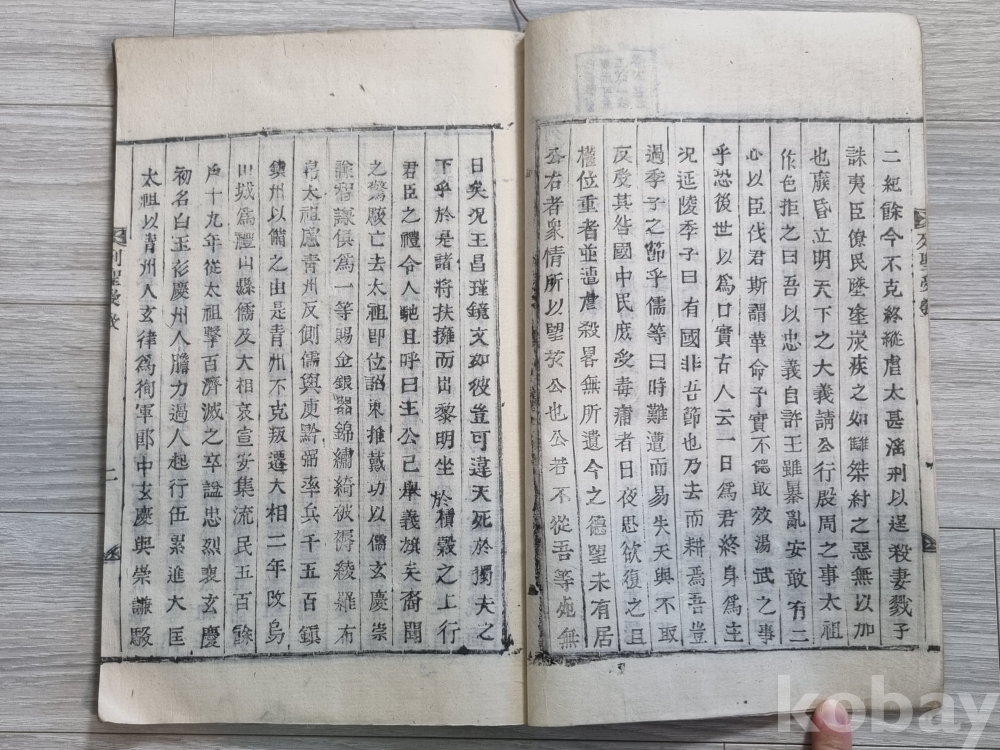 二紀餘今不克終縱虐太甚滛刑以逞殺妻戮子
誅夷臣僚民墜塗炭疾之如讎桀紂之惡無以加
也廢昏立明天下之大義請公行殷周之事太祖
作色拒之曰吾以忠義自許王雖暴亂安敢有二
心以臣伐君斯謂革命予實不德敢效湯武之事
乎恐後世以爲口實古人云一日爲君終身爲主
况延陵季子曰有國非吾節也乃去而耕焉吾豈
過季子之節乎儒等曰時難遭而易失天與不取
反受其咎國中民庶受毒痡者日夜思欲復之且
權位重者並遭虐殺畧無所遺今之德望未有居
公右者衆情所以望於公也公若不從吾等死無
日矣况王昌瑾鏡文如彼豈可違天死於獨夫之
下乎於是諸將扶擁而出黎明坐於積穀之上行
君臣之禮令人馳且呼曰王公已舉義旗矣裔聞
之驚駭亡去太祖卽位詔東推戴功以儒玄慶崇
謙智謙俱爲一等賜金銀器錦繡綺被褥綾羅布
帛太祖慮青州反側儒與庾黔弼率兵千五百鎮
鎮州以備之由是青州不克叛遷大相二年改烏
山城爲禮山縣儒及大相哀宣安集流民五百餘
戶十九年從太祖擊百濟滅之卒諡忠烈裵玄慶
初名白玉衫慶州人膽力過人起行伍累進大匡
太祖以青州人玄律爲徇軍郞中玄慶與崇謙駁
二
kobay